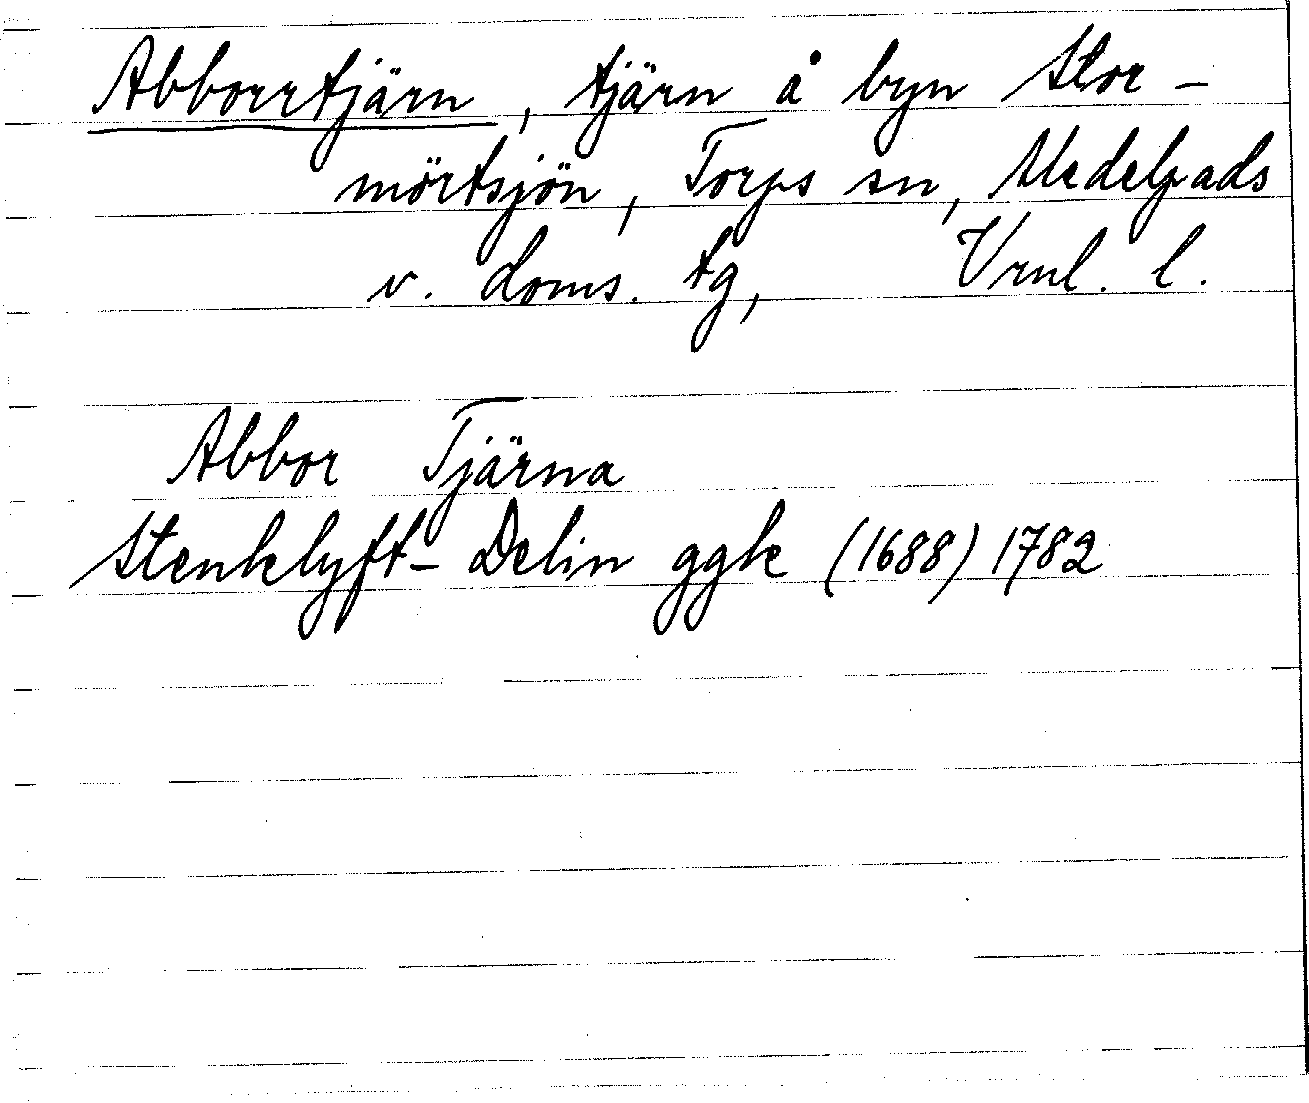 Abborrtjärn, tjärn å byn Stor-
mörtsjön, Torps sn, Medelpads
v. doms. tg, Vrnl. l.
Abbor Tjärna
Stenklyft-Delin ggk (1688) 1782